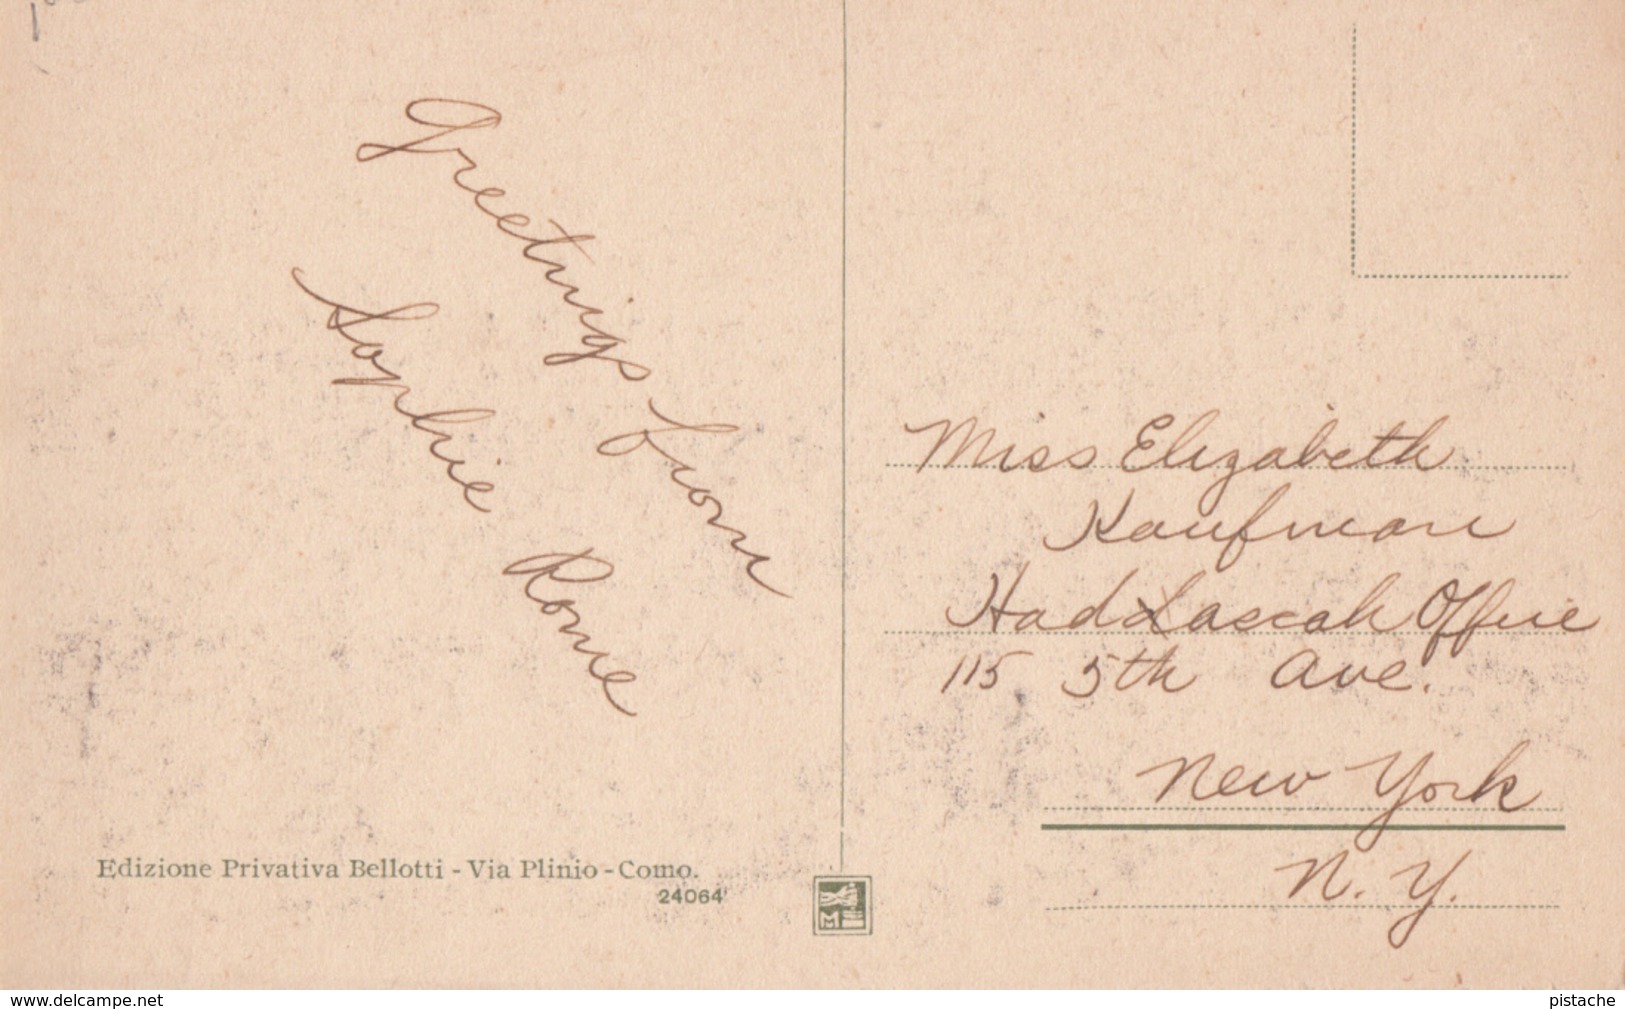 Greetings from
Sophie Rome
Miss Elizabeth
Kaufman
Office
115 5th Ave.
New York
N. Y.
Edizione Privativa Bellotti - Via Plinio - Como.
24064
www.delcampe.net
pistache